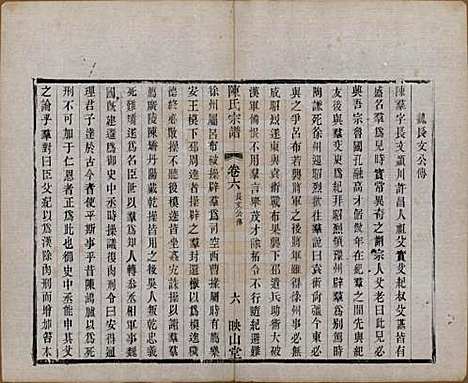 魏長文公傳
陳羣字長文潁川許昌人祖父寔父紀叔父諶皆有
盛名羣為兒時寔常異奇之謂宗人父老曰此兒必
興吾宗魯國孔融高才倨傲年在紀羣之間先與紀
友後與羣交更為紀拜昭烈領豫州辟羣為別駕時
陶謙死徐州迎昭烈羣說曰袁術尚強今東必
與之爭呂布若襲將軍之後將軍雖得徐州事必無
成昭烈遂東與袁術戰布果襲下邳遣兵助術大破
漢軍恨不用羣言舉茂才除柘令不行隨紀避難
陳氏宗譜
卷六
長文公傳
六
映山堂
徐州屬呂布破操辟羣為司空西曹掾屬時有薦樂
安王模下邳周逵者操辟之羣封還教以為模逵
穢德終必敗操不聽後模逵皆坐姦宄誅操以謝羣
薦廣陵陳矯丹陽戴乾操皆用之後吳人叛乾忠義
死難矯為名臣世以羣為知人轉參丞相軍事
國既建遷為御史中丞時操議復肉刑令曰安得通
理君子達於古今者使平斯事乎昔陳鴻臚以為死
刑有可加於仁恩者正謂此也御史中丞能申其父
之論乎羣對曰臣父紀以為漢除肉刑而增加笞本